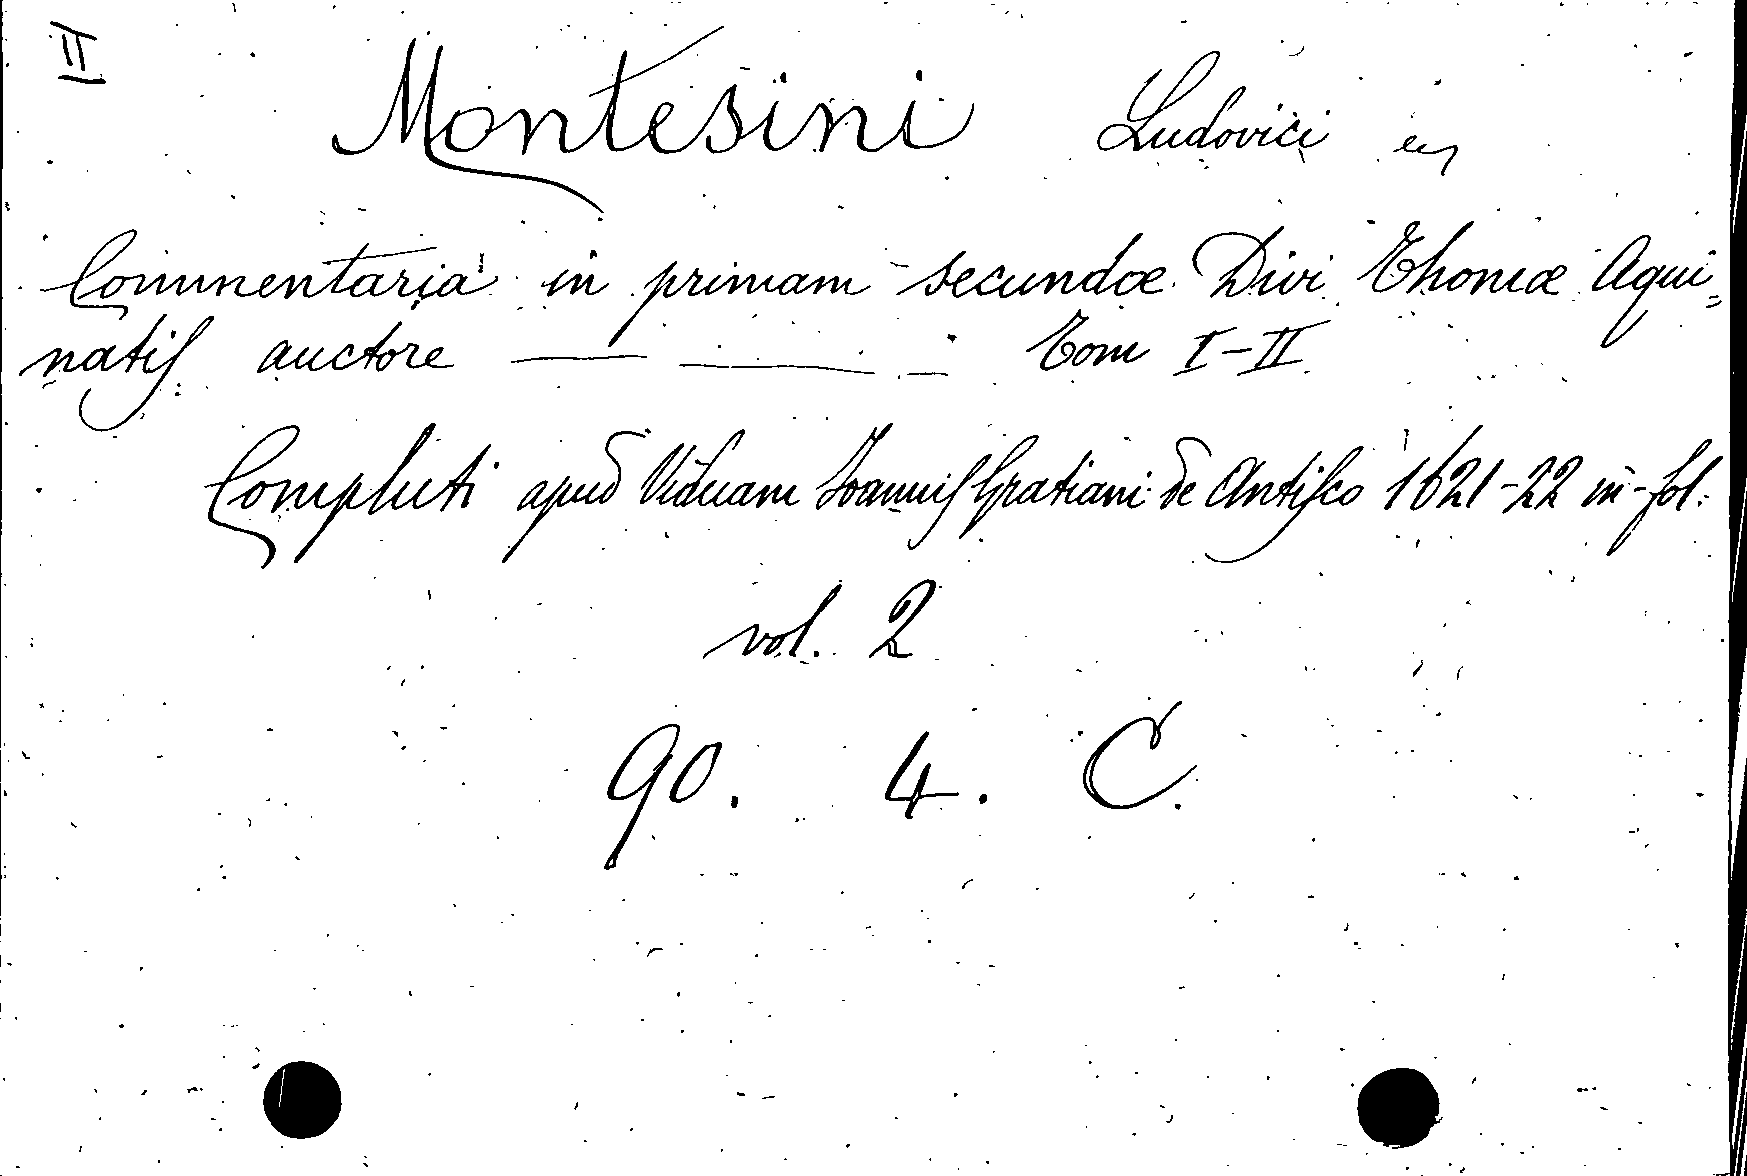 II
Montesini Ludovici
Commentaria in primam secundæ Divi Thomæ Aqui=
natis auctore — — — Tom I-II
Compluti apud Viduam Ioannis Gratiani de Antisco 1621-22 in-fol.
vol. 2
90. 4. C.